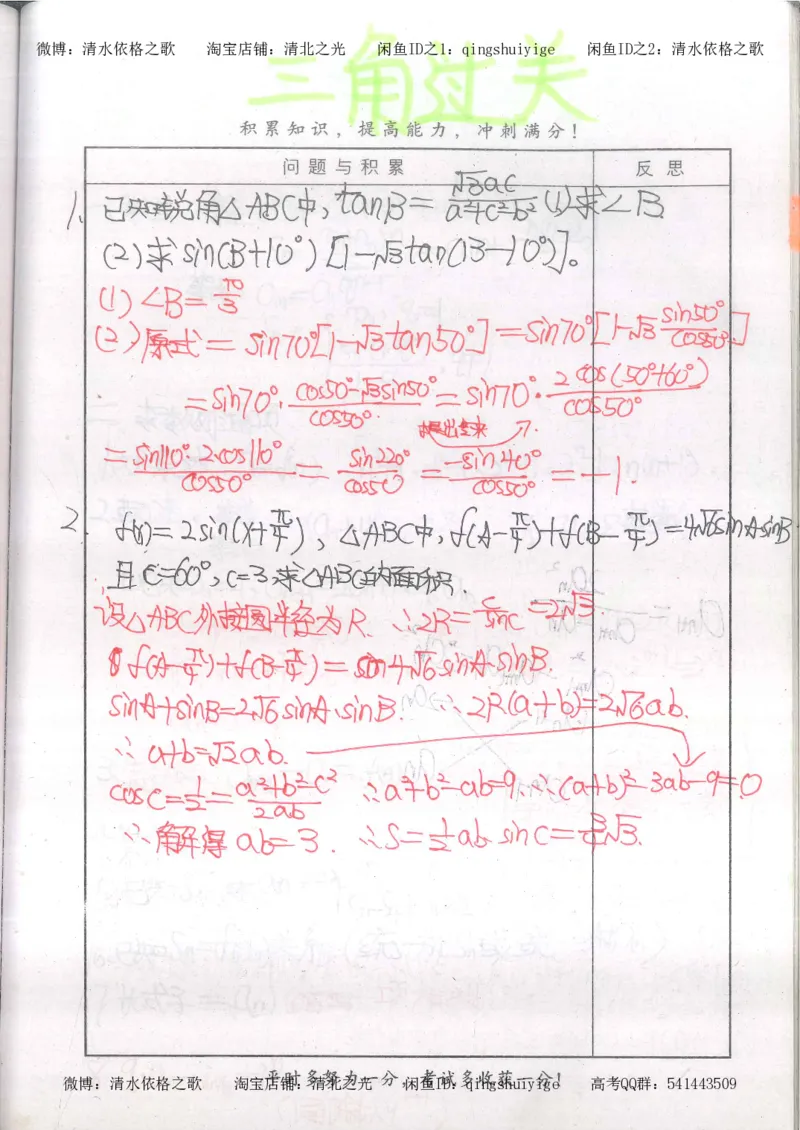 微博：清水依格之歌 淘宝店铺：清北之光 闲鱼ID之1：qingshuiyige 闲鱼ID之2：清水依格之歌
三角过关
积累知识，提高能力，冲刺满分！
问题与积累 反思
1、已知锐角△ABC中，tanB=√3ac/(a²+c²-b²) (1)求∠B
(2)求sin(B+10°)[1-√3tan(B-10°)]。
(1) ∠B=π/3
(2)原式=sin70°[1-√3tan50°]=sin70°[1-√3 sin50°/cos50°]
=sin70°·(cos50°-√3sin50°)/cos50°=sin70°·2cos(50°+60°)/cos50°
提出来
=sin110°·2cos110°/cos50°=sin220°/cos50°=-sin40°/cos50°=-1.
2. f(x)=2sin(x+π/4)，△ABC中，f(A-π/4)+f(B-π/4)=4√6sinA·sinB
且C=60°，c=3，求△ABC的面积.
设△ABC外接圆半径为R. ∴2R=c/sinC=2√3.
f(A-π/4)+f(B-π/4)=4√6sinA·sinB.
sinA+sinB=2√6sinA·sinB. ∴2R(a+b)=2√6ab.
∴a+b=√2ab.
cosC=1/2=(a²+b²-c²)/2ab ∴a²+b²-ab=9. ∴(a+b)²-3ab-9=0
∴解得ab=3. ∴S=1/2ab sinC=3/4√3.
平时多努力一分，考试多收获一分！
微博：清水依格之歌 淘宝店铺：清北之光 闲鱼ID：qingshuiyige 高考QQ群：541443509